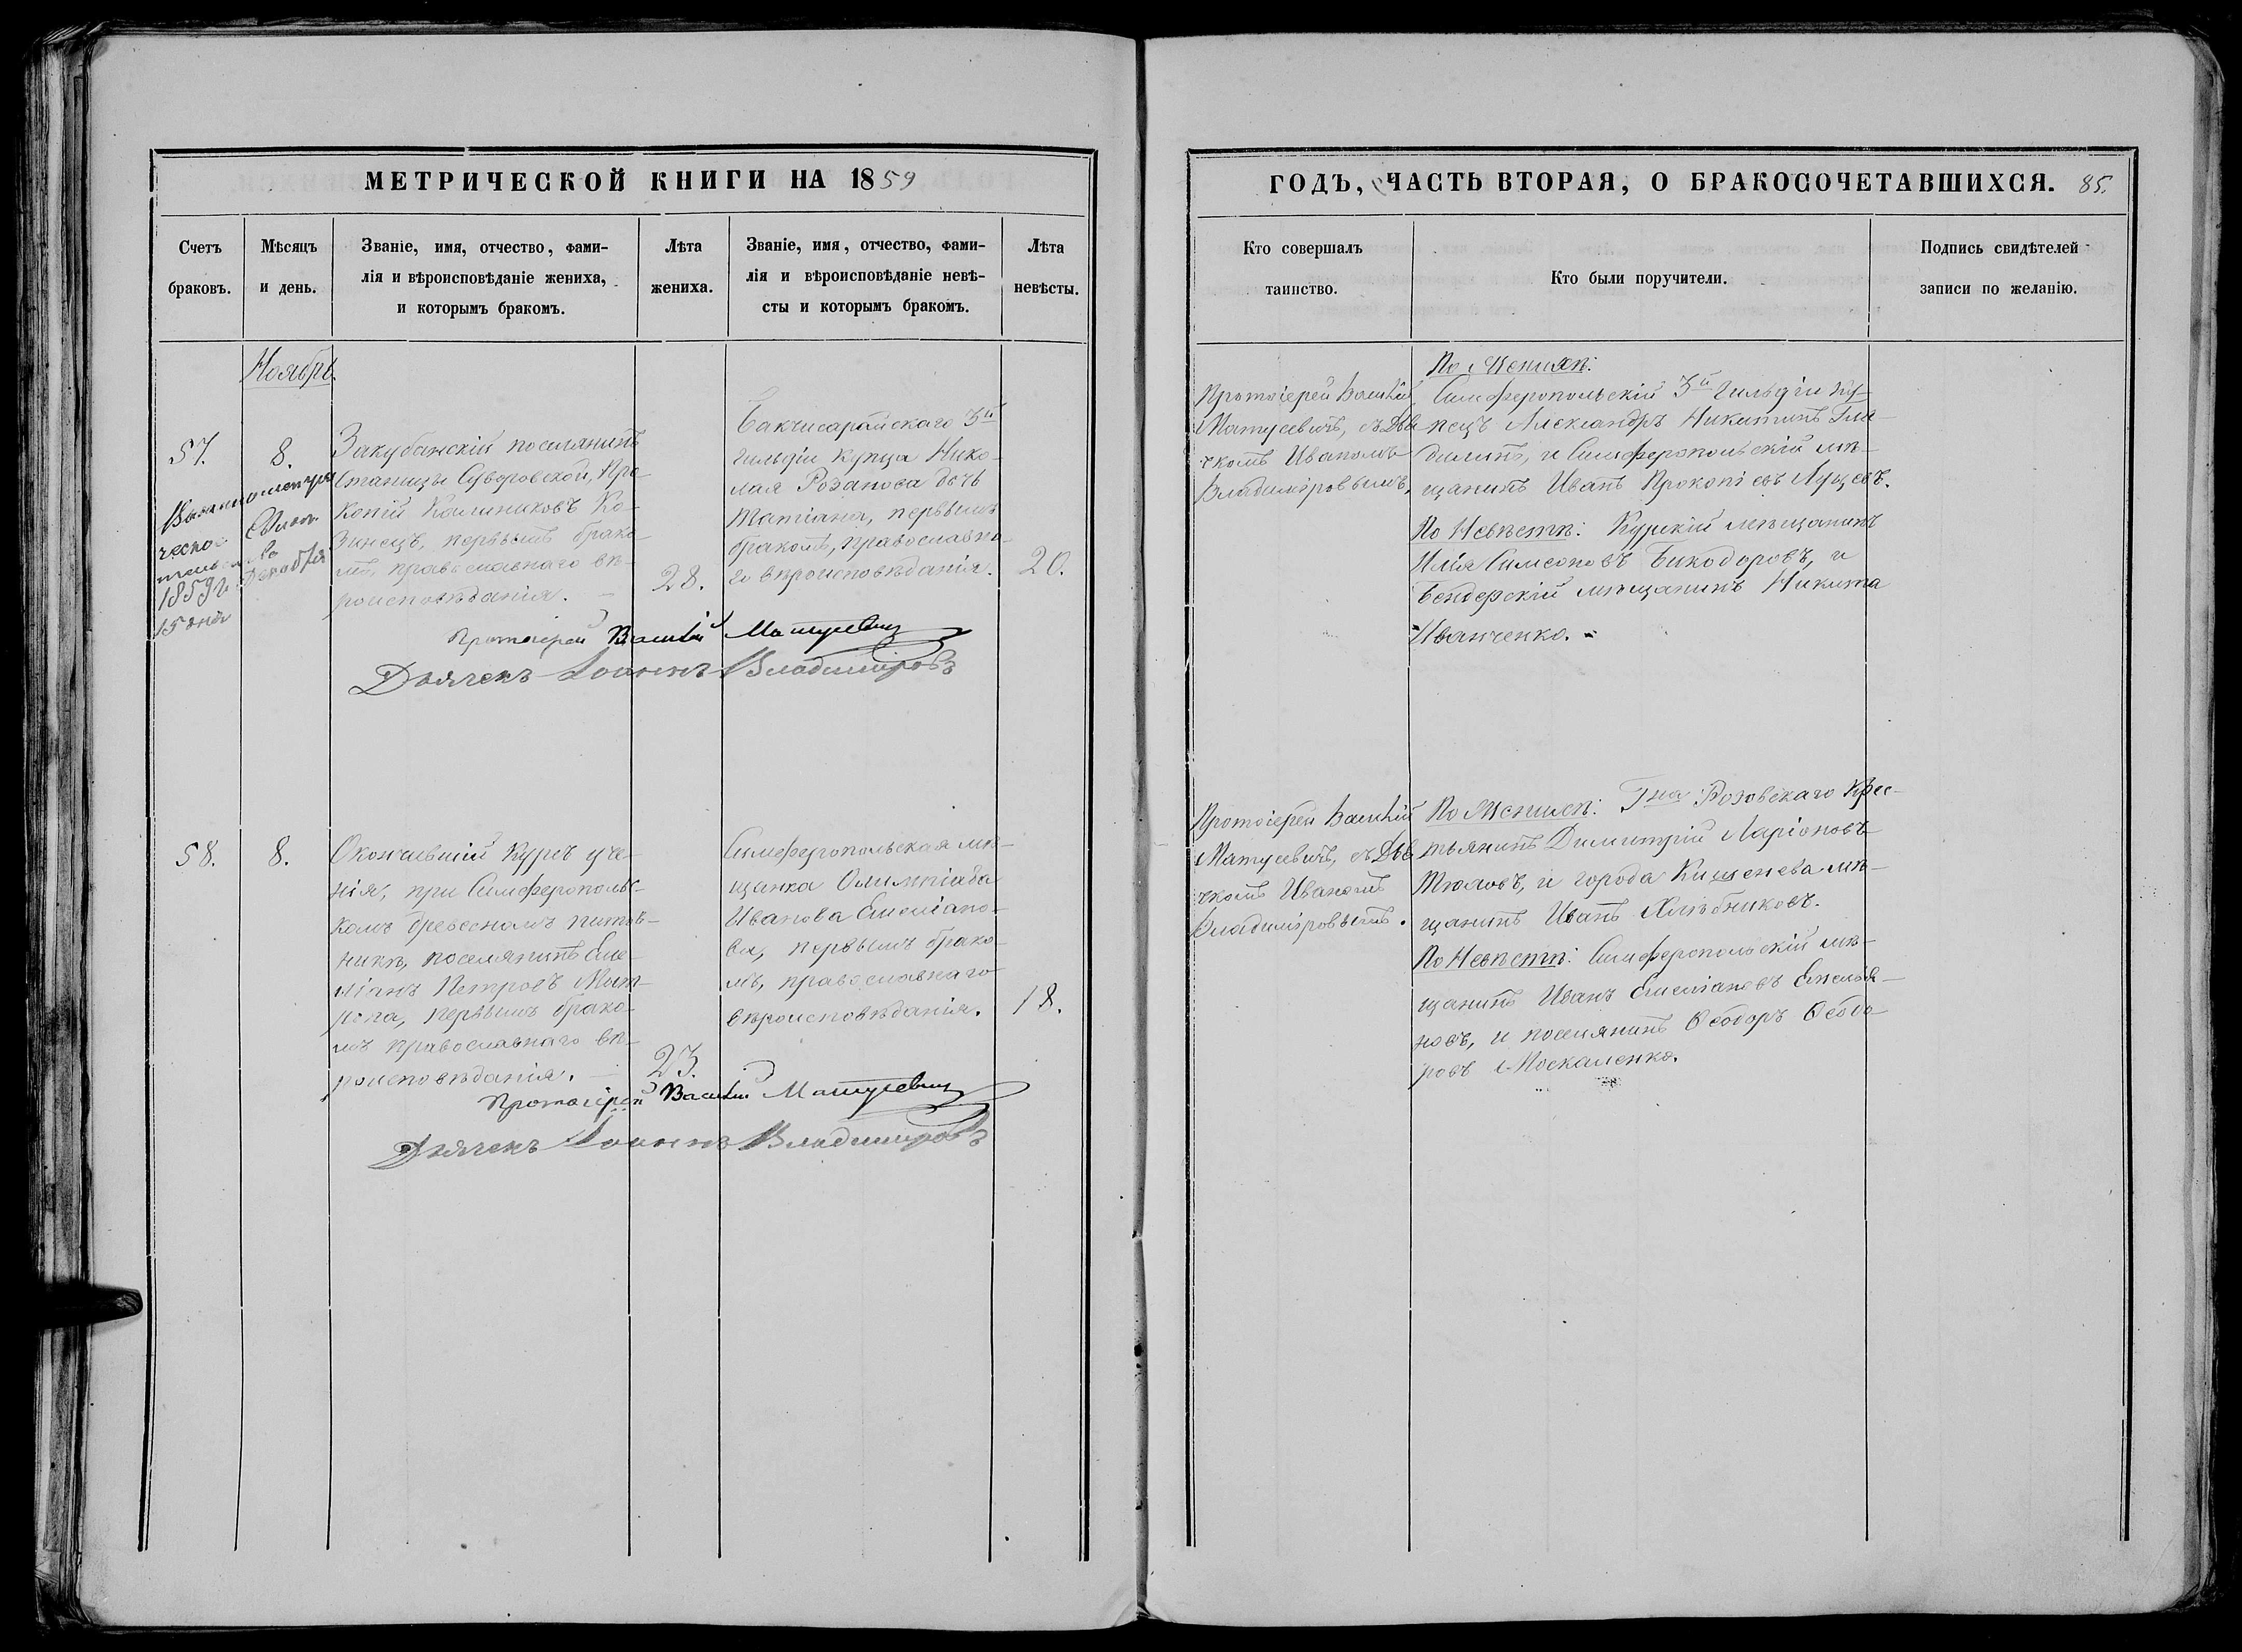 МЕТРИЧЕСКОЙ КНИГИ НА 1859
Счетъ
браковъ.
Мѣсяцъ
и день.
Званіе, имя, отчество, фами-
лія и вѣроисповѣданіе жениха,
и которымъ бракомъ.
Лѣта
жениха.
Званіе, имя, отчество, фами-
лія и вѣроисповѣданіе невѣ-
сты и которымъ бракомъ.
Лѣта
невѣсты.
Ноябрь.
57.
8.
1859 г Декабря
15 дня
Закубанскій поселянинъ
Станицы Суворовской, Про-
копій Калиниковъ Ко-
зинецъ, первымъ брако-
мъ, православнаго вѣ-
роисповѣданія. —
28.
Бакчисарайскаго 3й
гильдіи купца Нико-
лая Розанова дочь
Татіана, первымъ
бракомъ, православна-
го вѣроисповѣданія.
20.
Протоіерей Василій Матусевичъ
Дьячекъ Іоаннъ Владиміровъ
58.
8.
Окончившій курсъ уче-
нія, при Симферопольс-
комъ древесномъ питом-
никѣ, поселянинъ Еме-
ліанъ Петровъ Мит-
ропа, первымъ брако-
мъ православнаго вѣ-
роисповѣданія. —
23.
Симферопольская мѣ-
щанка Олимпіада
Иванова Емеліано-
ва, первымъ брако-
мъ, православнаго
вѣроисповѣданія.
18.
Протоіерей Василій Матусевичъ
Дьячекъ Іоаннъ Владиміровъ
ГОДЪ, ЧАСТЬ ВТОРАЯ, О БРАКОСОЧЕТАВШИХСЯ. 85.
Кто совершалъ
таинство.
Кто были поручители.
Подпись свидѣтелей
записи по желанію.
Протоіерей Василій
Матусевичъ, съ Дья
чкомъ Иваномъ
Владиміровымъ.
По Женихѣ:
Симферопольскій 3й Гильдіи Ку-
пецъ Александръ Никитинъ
и Симферопольскій мѣ-
щанинъ Иванъ Прокопіевъ Луцевъ.
По Невѣстѣ: Курскій мѣщанинъ
Илья Симеоновъ Бикодоровъ, и
Бендерскій мѣщанинъ Никита
Иванченко.
Протоіерей Василій
Матусевичъ, съ Дья
чкомъ Иваномъ
Владиміровымъ.
По Женихѣ: Гна Розовскаго Крес-
тьянинъ Димитрій Ларіоновъ
Тюловъ, и города Кишенева мѣ-
щанинъ Иванъ Хлѣбниковъ.
По Невѣстѣ: Симферопольскій мѣ-
щанинъ Иванъ Емеліановъ Емелья-
новъ, и поселянинъ Ѳеодоръ Ѳеодо
ровъ Москаленко.